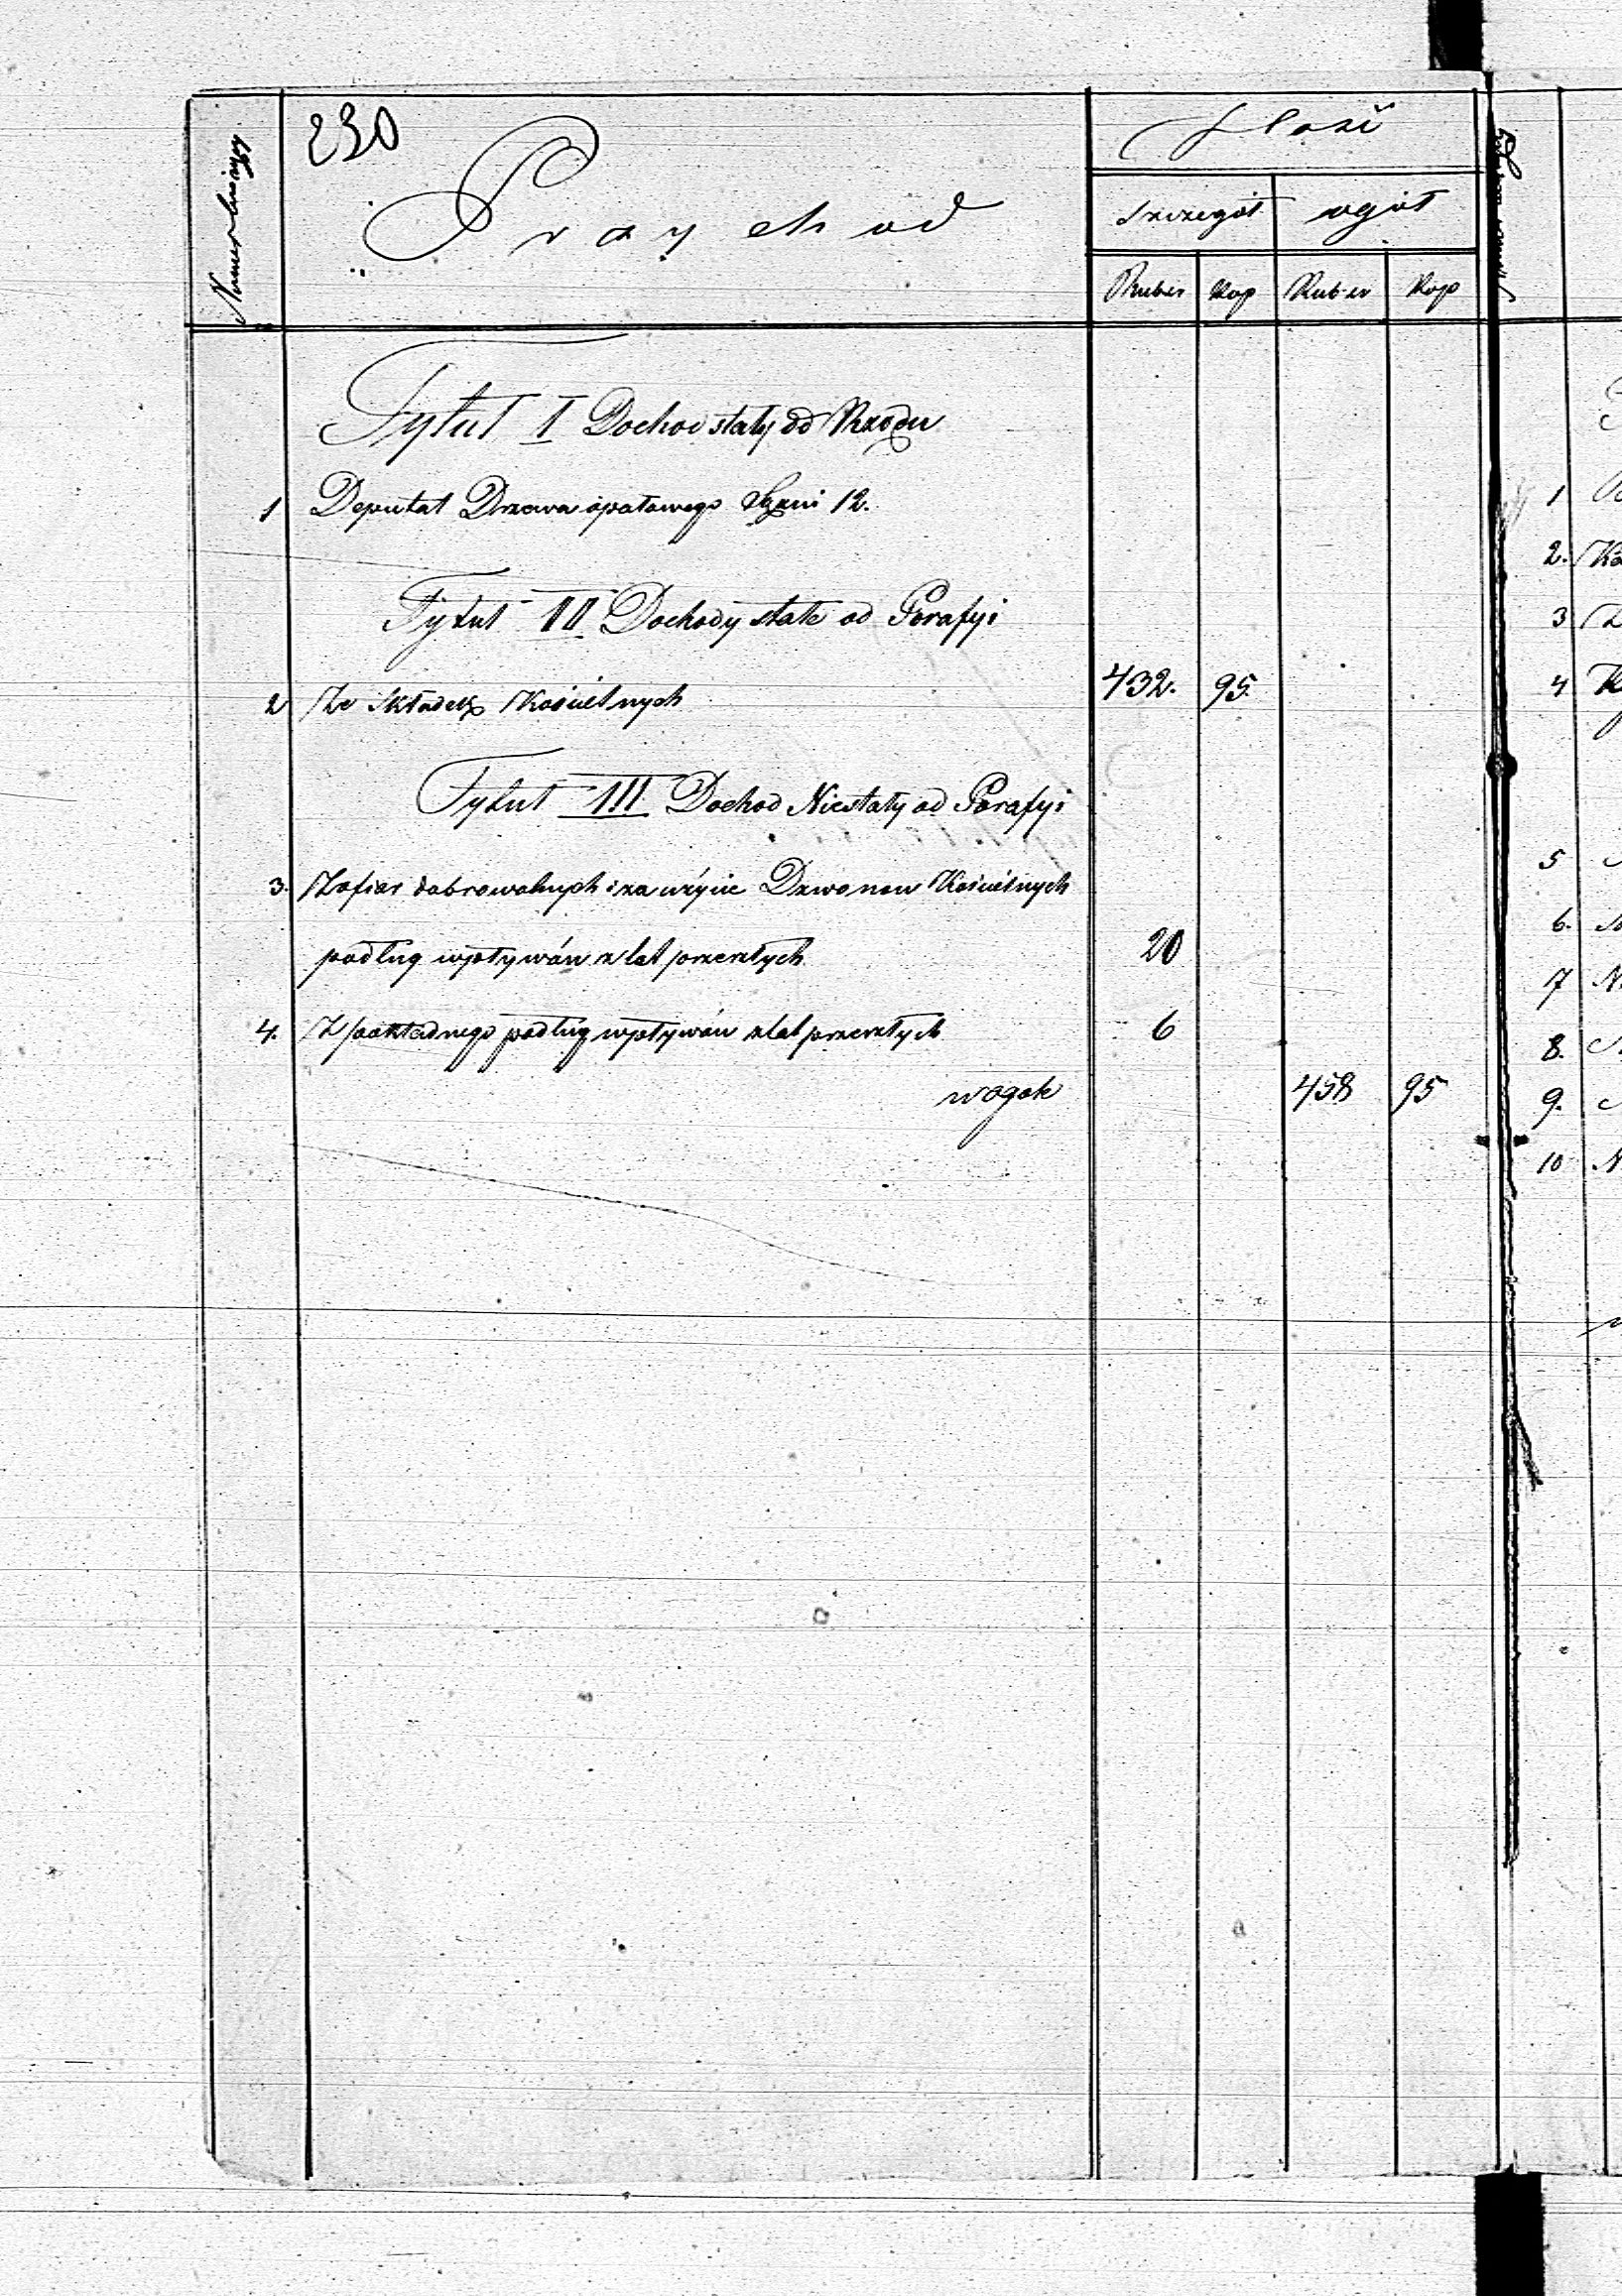 230
Numer bieżący
Przychod
Ilość
szczegół ogół
Rubsr Kop Rubsr Kop
Tytuł I Dochod stały od Rządu
1 Deputat Drzewa opałowego Sążni 12.
Tytuł II Dochody stałe od Parafyi
2 Ze składek Kościelnych 432. 95.
Tytuł III Dochod Niestały od Parafyi
3. Z ofiar dobrowolnych i za użycie Dzwonow Kościelnych
podług wpływów z lat przeszłych 20
4. Z pokładnego podług wpływów z lat przeszłych 6
wogole 458 95
1
2.
3
4
5
6.
7
8.
9.
10